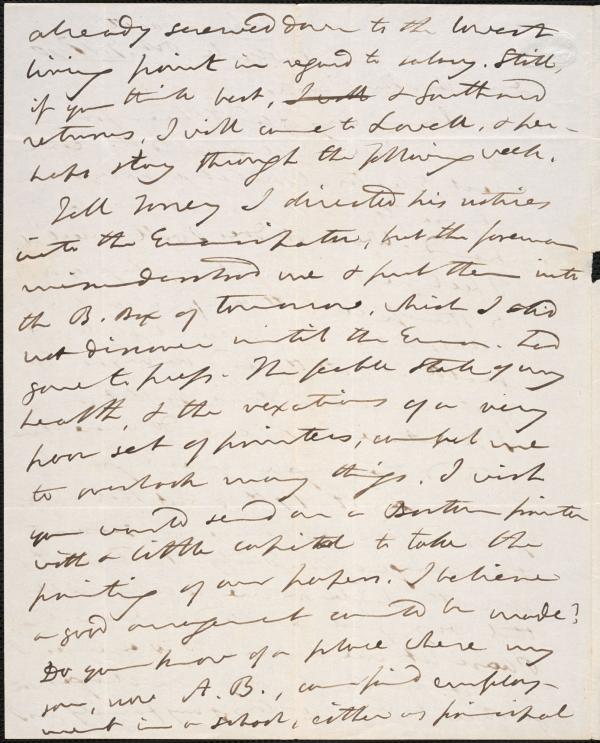 already screwed down to the lowest
living point in regard to salary. Still,
if you think best, I will & Southard
returns, I will come to Lowell, & per-
haps stay through the following week.
Tell Torrey I directed his notices
into the Emancipator, but the foreman
misunderstood me & put them into
the B. of tomorrow, which I did
not discover until the Eman. had
gone to press. The feeble state of my
health, & the vexations of a very
poor set of printers, compel me
to overlook many things. I wish
you would send on a Boston printer
with a little capital to take the
printing of our papers. I believe
a good arrangement could be made?
Do you know of a place where my
son, now A.B., can find employ-
ment in a school, either as principal